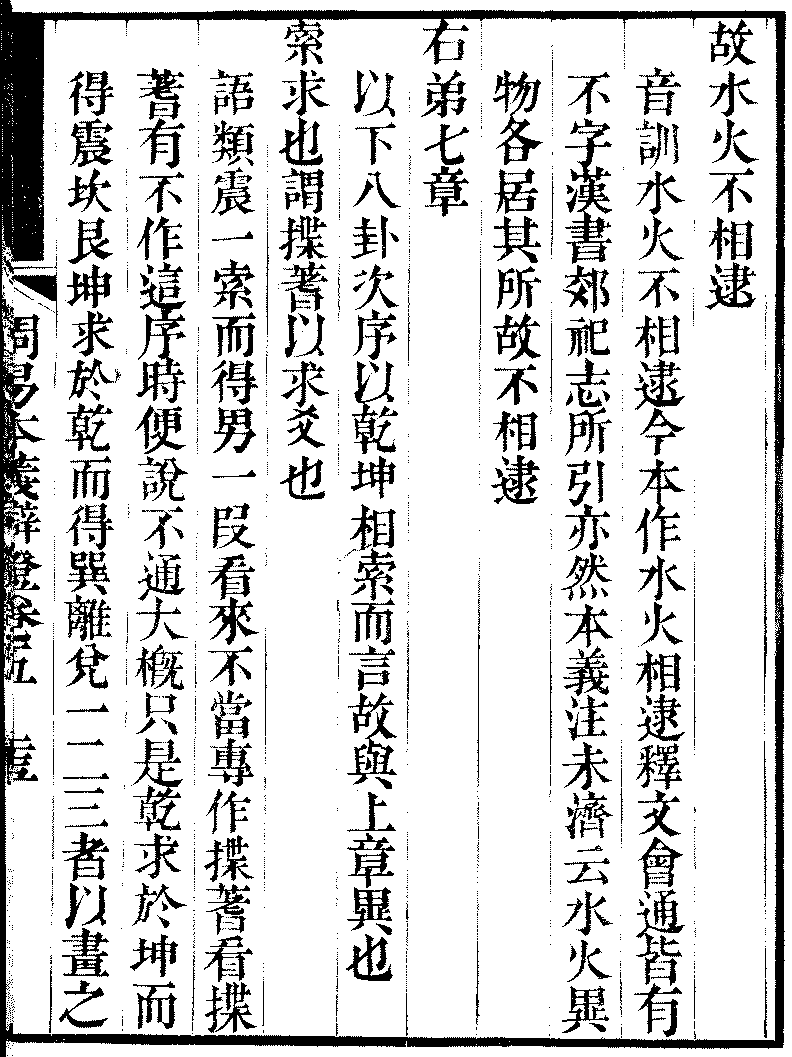 故水火不相逮
音訓水火不相逮今本作水火相逮釋文會通皆有
不字漢書郊祀志所引亦然本義注未濟云水火異
物各居其所故不相逮
右弟七章
以下八卦次序以乾坤相索而言故與上章異也
索求也謂揲蓍以求爻也
語類震一索而得男一段看來不當專作揲蓍看揲
蓍有不作這序時便說不通大槪只是乾求於坤而
得震坎艮坤求於乾而得巽離兌一二三者以畫之
周易本義辯證卷五